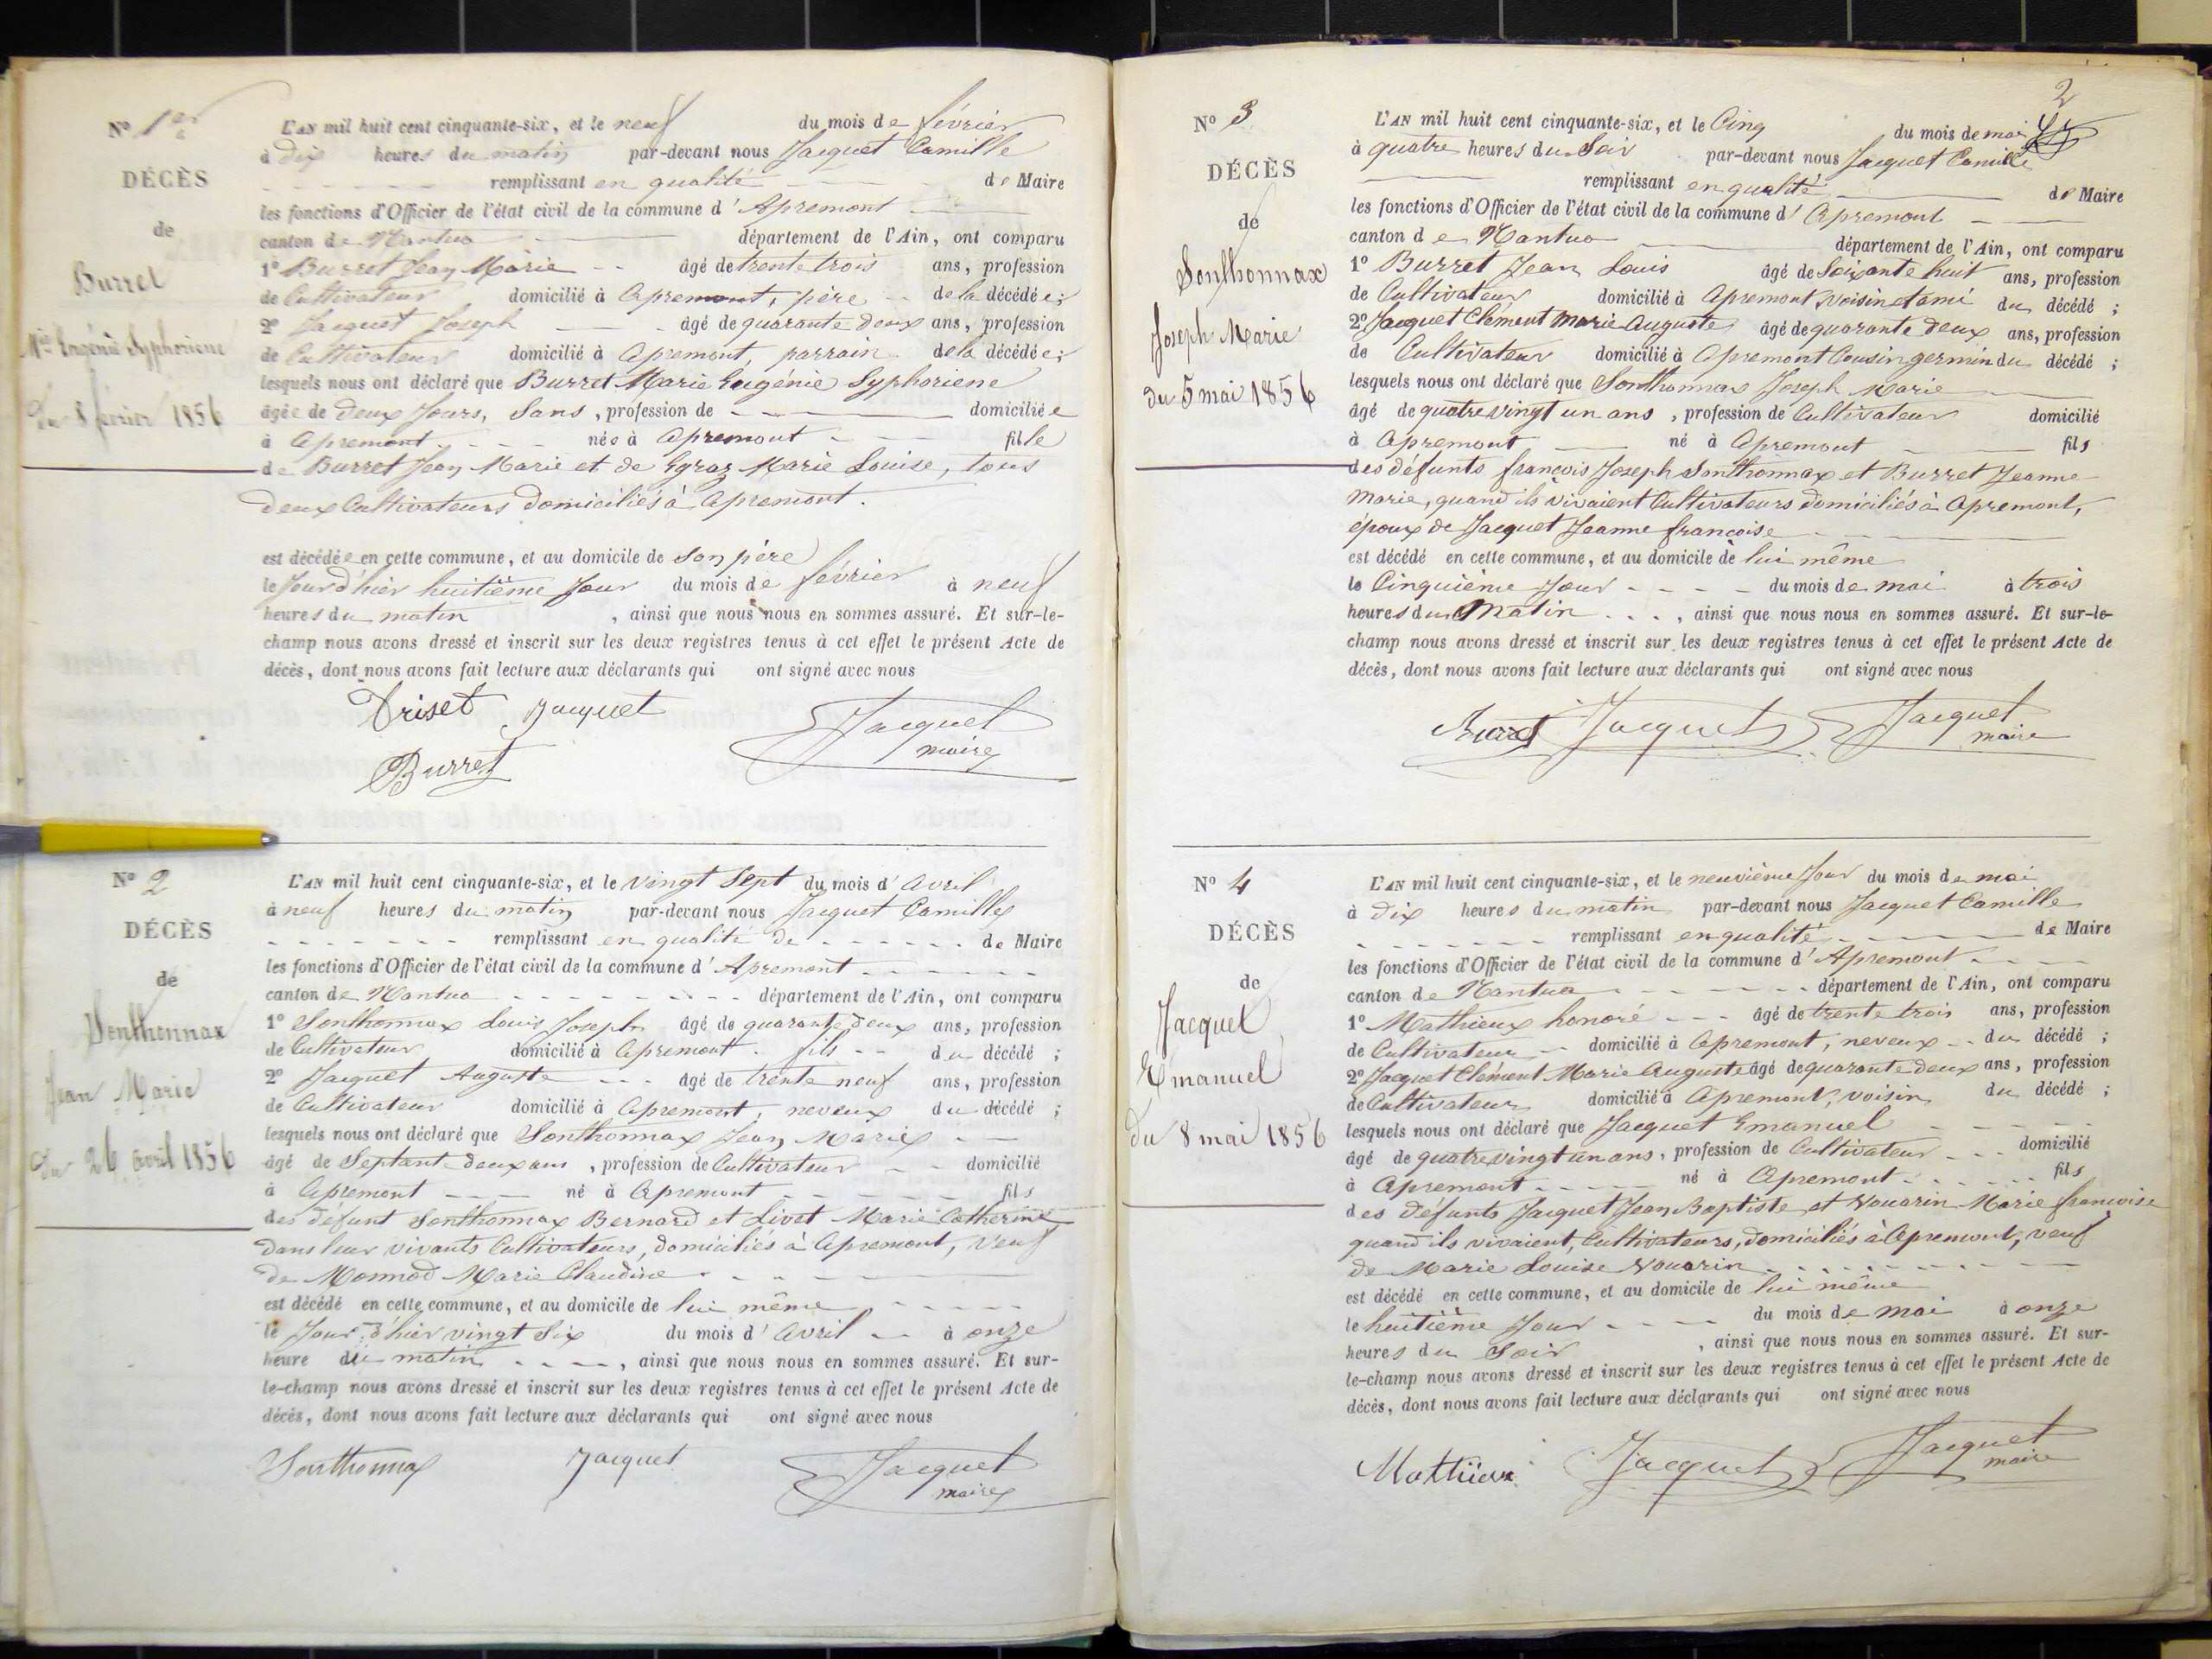 N° 1er
DÉCÈS
de
Burret
Mie Eugénie Syphoriene
du 8 février 1856
L'AN mil huit cent cinquante-six, et le neuf du mois de février
à dix heures du matin par-devant nous Jacquet Camille
remplissant en qualité de Maire
les fonctions d'Officier de l'état civil de la commune d'Apremont
canton de Nantua département de l'Ain, ont comparu
1° Burret Jean Marie âgé de trente trois ans, profession
de Cultivateur domicilié à Apremont, père de la décédée;
2° Jacquet Joseph âgé de quarante deux ans, profession
de Cultivateur domicilié à Apremont, parrain de la décédée;
lesquels nous ont déclaré que Burret Marie Eugénie Syphoriene
âgée de deux Jours, Sans, profession de domiciliée
à Apremont née à Apremont fille
de Burret Jean Marie et de Egraz Marie Louise, tous
deux Cultivateurs domiciliés à Apremont.
est décédée en cette commune, et au domicile de son père
le Jour d'hier huitième Jour du mois de février à neuf
heures du matin, ainsi que nous nous en sommes assuré. Et sur-le-
champ nous avons dressé et inscrit sur les deux registres tenus à cet effet le présent Acte de
décès, dont nous avons fait lecture aux déclarants qui ont signé avec nous
Jacquet Jacquet
maire
Burret
N° 2
DÉCÈS
de
Sonthonnax
Jean Marie
du 26 avril 1856
L'AN mil huit cent cinquante-six, et le vingt Sept du mois d'avril
à neuf heures du matin par-devant nous Jacquet Camille
remplissant en qualité de de Maire
les fonctions d'Officier de l'état civil de la commune d'Apremont
canton de Nantua département de l'Ain, ont comparu
1° Sonthonnax Louis Joseph âgé de quarante deux ans, profession
de Cultivateur domicilié à Apremont. fils du décédé;
2° Jacquet Auguste âgé de trente neuf ans, profession
de Cultivateur domicilié à Apremont, neveux du décédé;
lesquels nous ont déclaré que Sonthonnax Jean Marie
âgé de Septante deux ans, profession de Cultivateur domicilié
à Apremont né à Apremont fils
des défunt Sonthonnax Bernard et Livet Marie Catherine
dans leur vivants Cultivateurs, domiciliés à Apremont, veuf
de Monnod Marie Claudine
est décédé en cette commune, et au domicile de lui même
le Jour d'hier vingt Six du mois d'avril à onze
heure du matin, ainsi que nous nous en sommes assuré. Et sur-
le-champ nous avons dressé et inscrit sur les deux registres tenus à cet effet le présent Acte de
décès, dont nous avons fait lecture aux déclarants qui ont signé avec nous
Sonthonnax Jacquet Jacquet
maire
2
N° 3
DÉCÈS
de
Sonthonnax
Joseph Marie
du 5 mai 1856
L'AN mil huit cent cinquante-six, et le Cinq du mois de mai
à quatre heures du Soir par-devant nous Jacquet Camille
remplissant en qualité de Maire
les fonctions d'Officier de l'état civil de la commune d'Apremont
canton de Nantua département de l'Ain, ont comparu
1° Burret Jean Louis âgé de Soixante huit ans, profession
de Cultivateur domicilié à Apremont, voisin et ami du décédé;
2° Jacquet Clément Marie Auguste âgé de quarante deux ans, profession
de Cultivateur domicilié à Apremont Cousin germin du décédé;
lesquels nous ont déclaré que Sonthonnax Joseph Marie
âgé de quatre vingt un ans, profession de Cultivateur domicilié
à Apremont né à Apremont fils
des défunts françois Joseph Sonthonnax et Burret Jeanne
Marie, quand ils vivaient Cultivateurs domiciliés à Apremont,
époux de Jacquet Jeanne françoise
est décédé en cette commune, et au domicile de lui même
le Cinquième Jour du mois de mai à trois
heures du Matin, ainsi que nous nous en sommes assuré. Et sur-le-
champ nous avons dressé et inscrit sur les deux registres tenus à cet effet le présent Acte de
décès, dont nous avons fait lecture aux déclarants qui ont signé avec nous
Burret Jacquet Jacquet
maire
N° 4
DÉCÈS
de
Jacquet
Emanuel
du 8 mai 1856
L'AN mil huit cent cinquante-six, et le neuvième Jour du mois de mai
à dix heures du matin par-devant nous Jacquet Camille
remplissant en qualité de Maire
les fonctions d'Officier de l'état civil de la commune d'Apremont
canton de Nantua département de l'Ain, ont comparu
1° Mathieux honoré âgé de trente trois ans, profession
de Cultivateur domicilié à Apremont, neveux du décédé;
2° Jacquet Clément Marie Auguste âgé de quarante deux ans, profession
de Cultivateur domicilié à Apremont, voisin du décédé;
lesquels nous ont déclaré que Jacquet Emanuel
âgé de quatre vingt un ans, profession de Cultivateur domicilié
à Apremont né à Apremont fils
des défunts Jacquet Jean Baptiste et Vouarin Marie françoise
quand ils vivaient, Cultivateurs, domiciliés à Apremont, veuf
de Marie Louise Vouarin
est décédé en cette commune, et au domicile de lui même
le huitième Jour du mois de mai à onze
heures du Soir, ainsi que nous nous en sommes assuré. Et sur-
le-champ nous avons dressé et inscrit sur les deux registres tenus à cet effet le présent Acte de
décès, dont nous avons fait lecture aux déclarants qui ont signé avec nous
Mathieux Jacquet Jacquet
maire